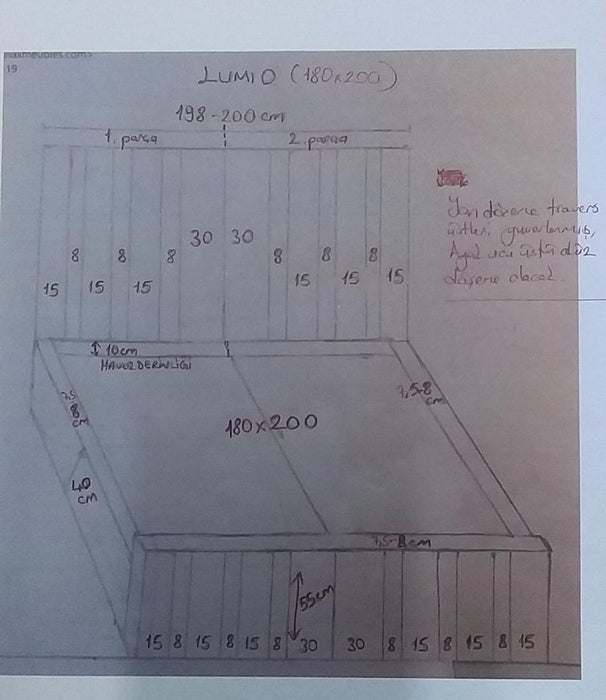 19
LUMIO (180x200)
198-200cm
1. parça
2. parça
15 8 15 8 15 8 30 30 8 15 8 15 8 15
Yan döşeme travers
üstleri yuvarlanmış,
Ayak ucu üstü düz
döşeme olacak.
10cm
HAVUZ DERİNLİĞİ
7,5
8
cm
7,5-8
cm
180x200
40
cm
7,5-8cm
55cm
15 8 15 8 15 8 30 30 8 15 8 15 8 15